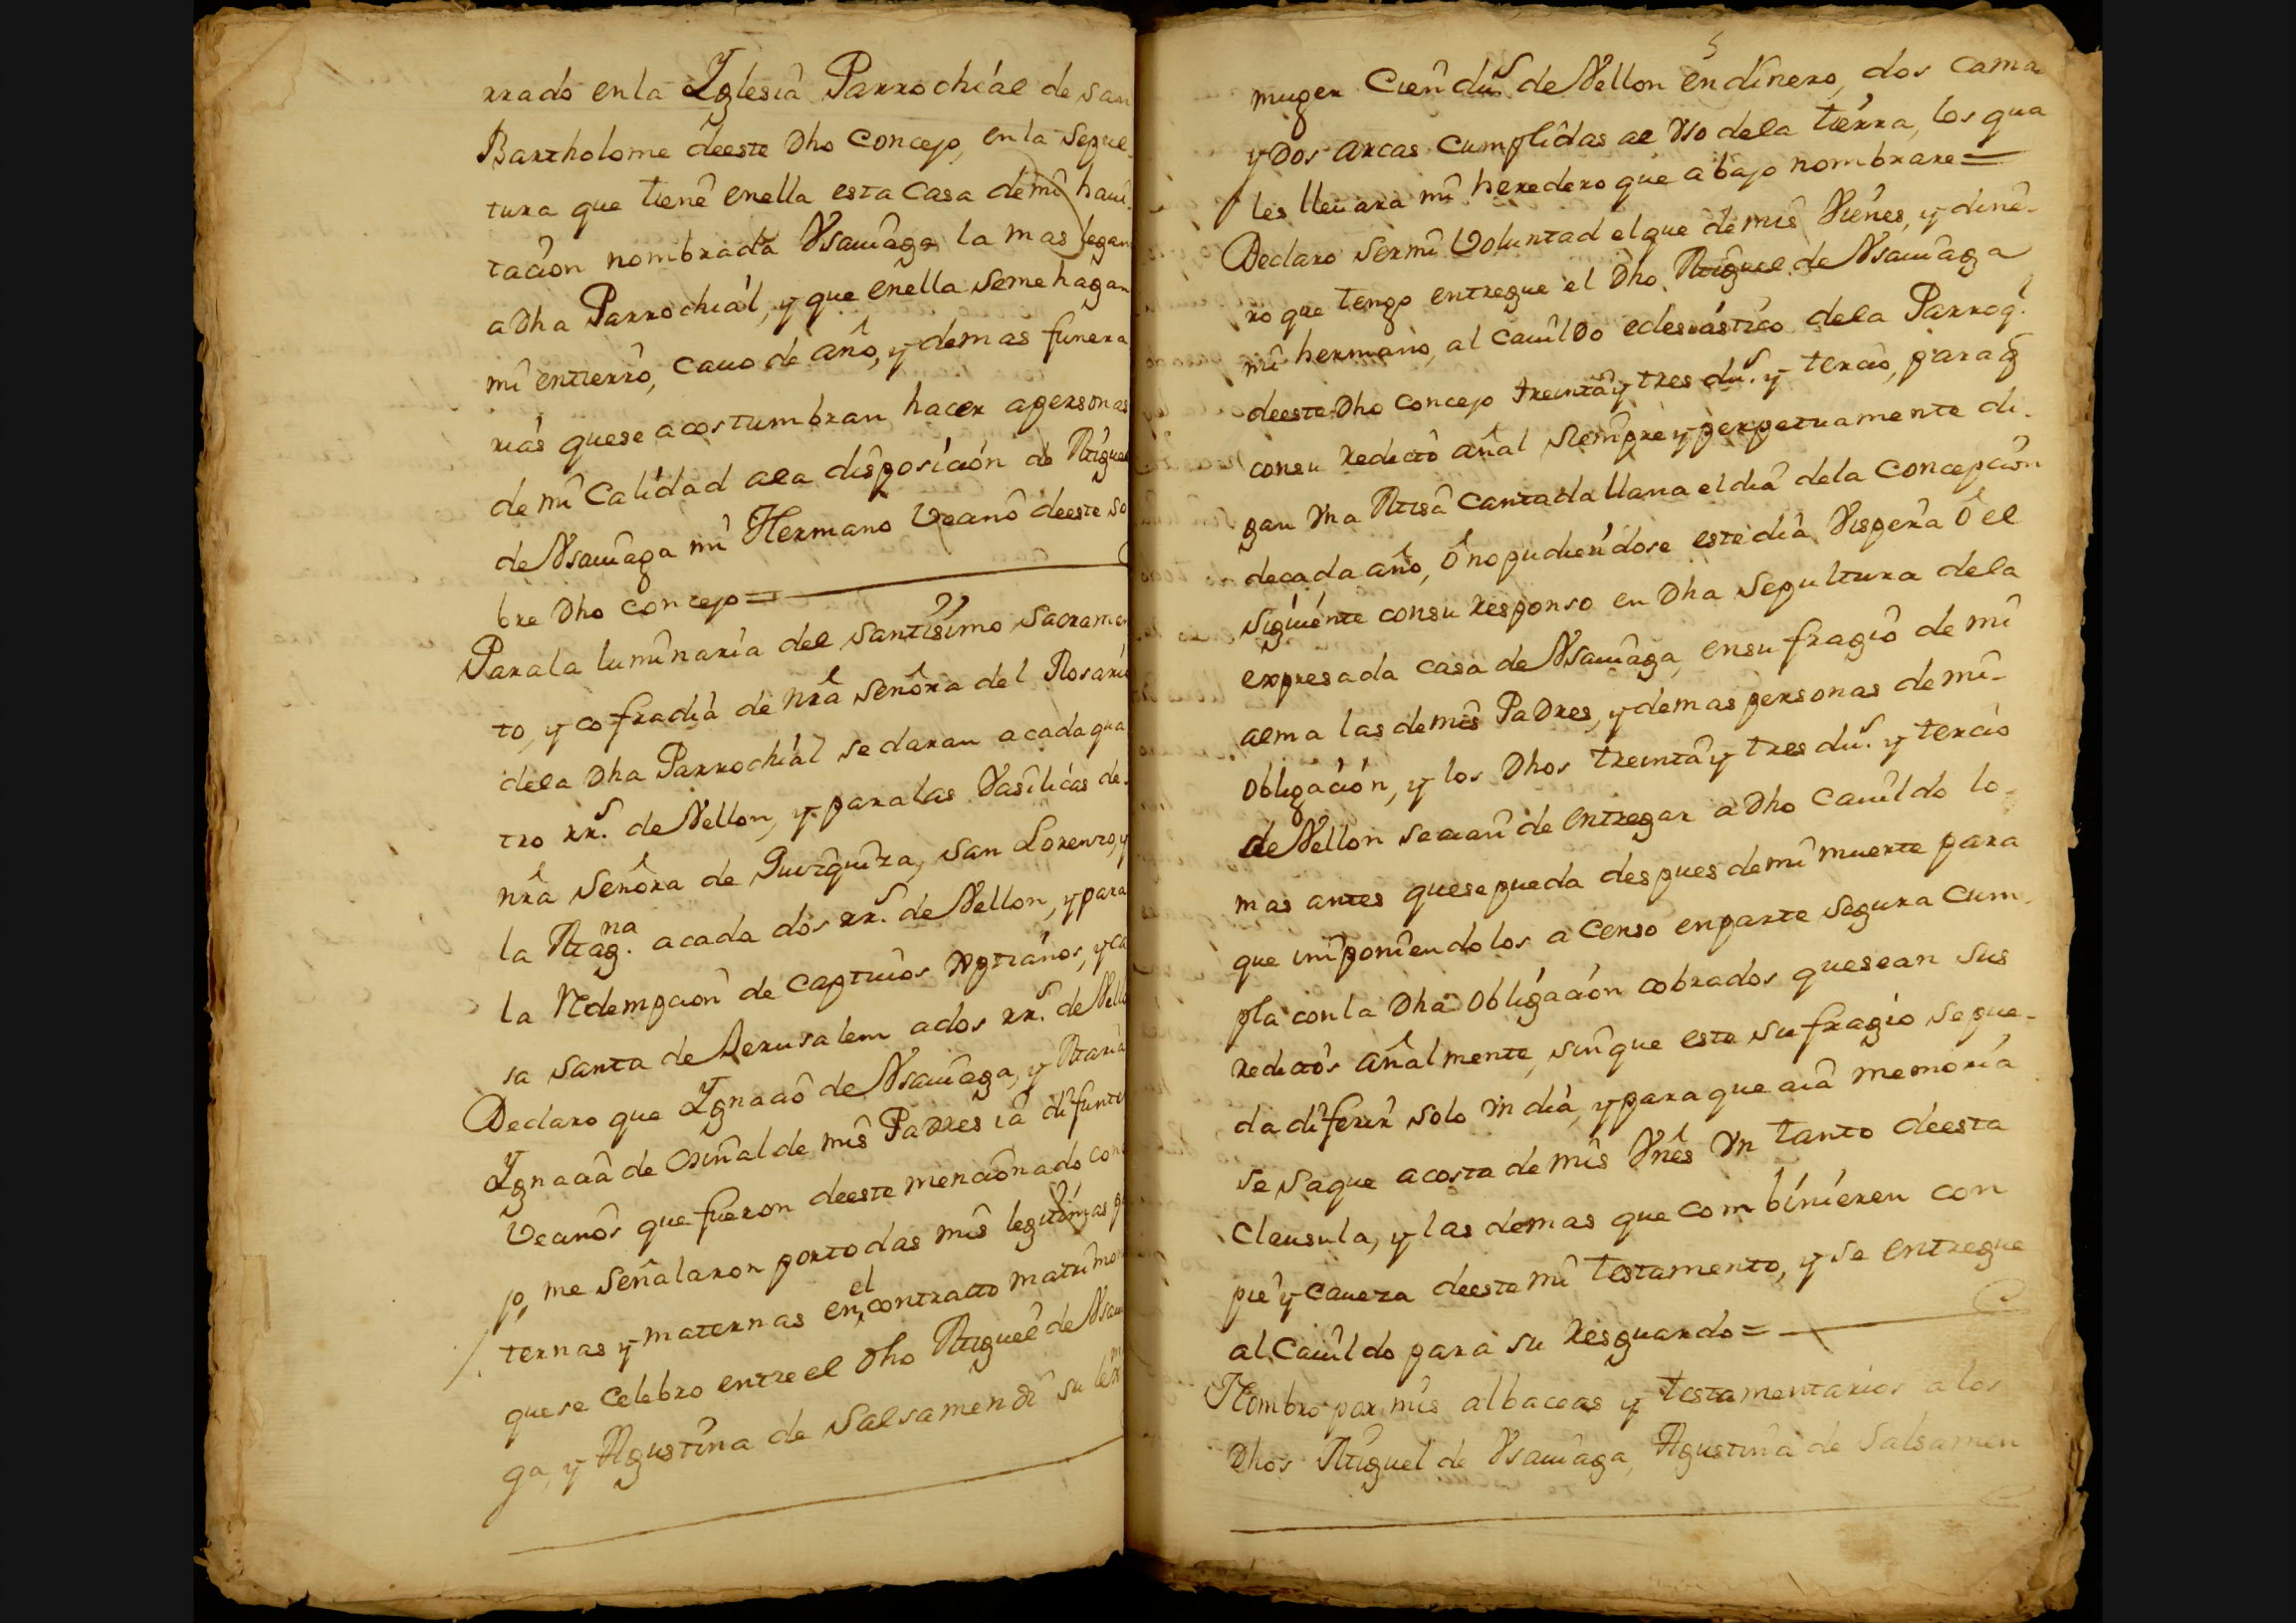 rrado en la Yglesia Parrochial de San
Bartholome de este Dho Concejo, en la Sepul-
tura que tiene en ella esta Casa de mi havi-
tacion nombrada Vsauiaga la mas legan
a Dha Parrochial, y que en ella se me hagan
mi entierro, cauo de año, y demas funera
rias que se acostumbran hacer a personas
de mi Calidad a la disposicion de Miguel
de Vsauiaga mi Hermano Vecino de este so
bre Dho concejo =
Para la luminaria del Santisimo Sacramen
to, y cofradia de nrâ Señora del Rosario
de la Dha Parrochial se daran a cada qua
tro rr.s de Vellon, y para las Vasilicas de
nrâ Señora de Guizquiza, San Lorenzo, y
la Mag.na a cada dos rr.s de Vellon, y para
la Redempcion de Captiuos Xptianos, y ca
sa santa de Jerusalem a dos rr.s de Vello
Declaro que Ygnacio de Vsauiaga, y Maria
Ygnacia de Osinalde mis Padres ia difuntos
Vecinos que fueron de este mencionado conce
jo, me señalaron por todas mis legitimas pa
ternas y maternas en el contracto matrimon
que se celebro entre el Dho Miguel de Vsauia
ga, y Agustina de Salsamendi su lexma
muger Cien du.s de Vellon en dinero, dos cama
y Dos arcas cumplidas al Vso de la tierra, los qua
les lleuara mi heredero que abajo nombrare =
Declaro ser mi Voluntad el que de mis Vienes, y dine-
ro que tengo entregue el Dho Miguel de Vsauiaga
mi hermano, al cauildo eclesiastico de la Parroq.l
de este Dho concejo treinta y tres du.s y tercio, para q̃
con su redicto añal siempre y perpetuamente di-
gan Vna Misa cantada llana el dia de la Concepcion
de cada año, ô no pudiendose este dia, Vispera ô el
siguiente con su responso en Dha Sepultura de la
expresada casa de Vsauiaga, en sufragio de mi
alma las de mis Padres, y demas personas de mi-
obligacion, y los Dhos treinta y tres du.s y tercio
de Vellon se aian de entregar a Dho cauildo lo-
mas antes que se pueda despues de mi muerte para
que imponiendolos a Censo en parte segura cum-
pla con la Dha obligacion cobrados que sean sus
redictos añalmente, sin que este sufragio se pue-
da diferir solo Vn dia, y para que aia memoria
se saque a costa de mis Vnês Vn tanto de esta
Clausula, y las demas que combinieren con
pie y caueza de este mi testamento, y se entregue
al Cauildo para su resguardo =
Nombro por mis albaceas y testamentarios a los
Dhos Miguel de Vsauiaga, Agustina de Salsamen